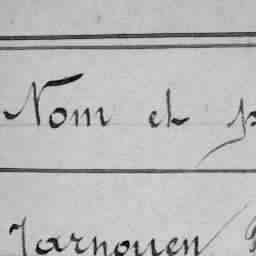 Nom et p
Jarnouen